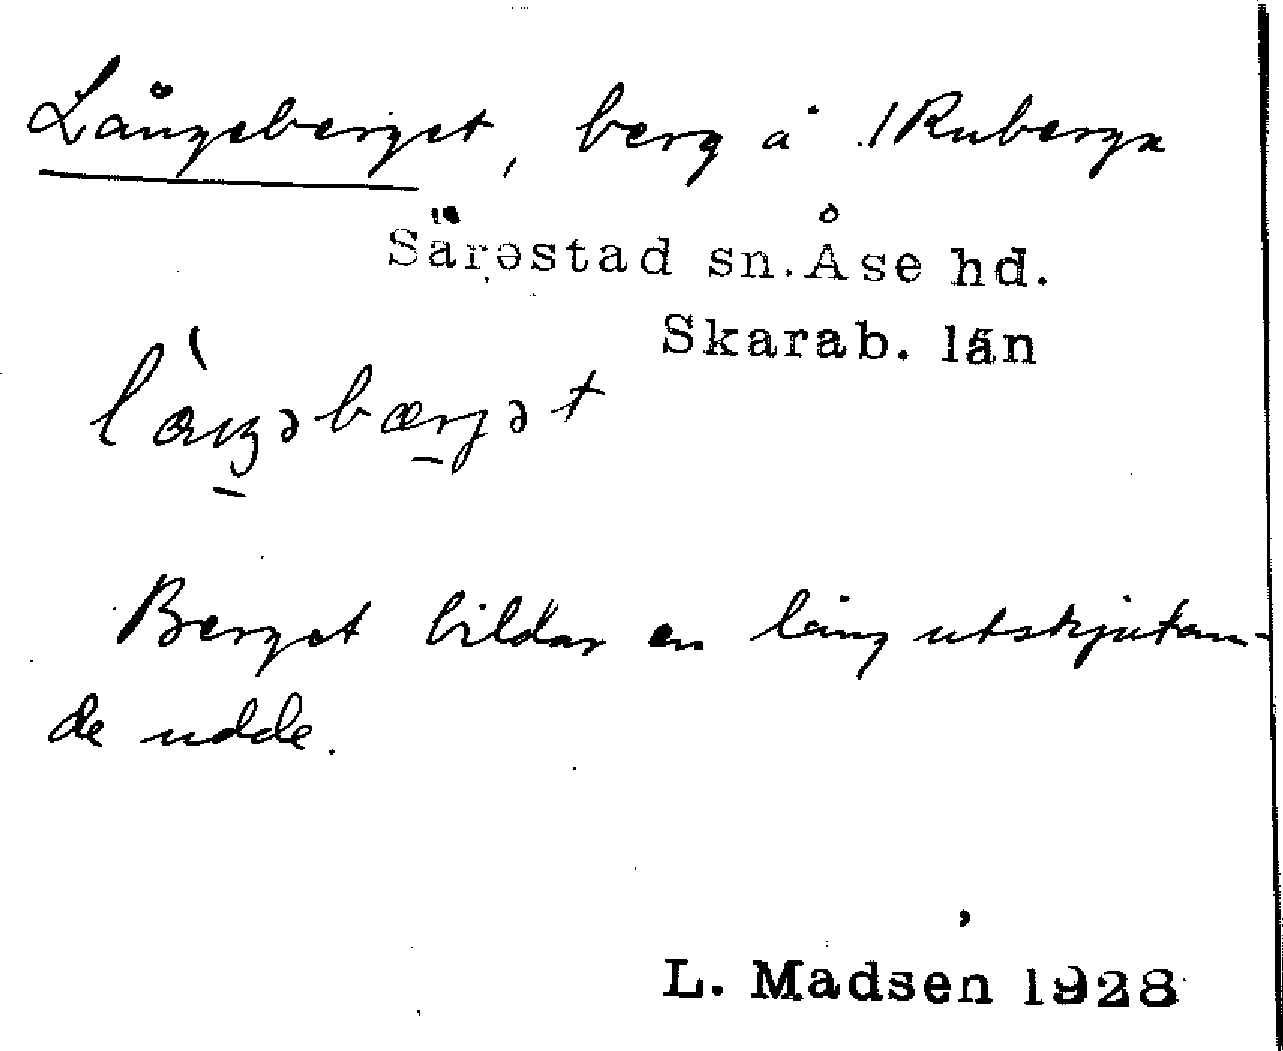 Långeberget, berg å 1 Ruberga
Särestad sn. Åse hd.
Skarab. län
làŋəbærgət
Berget bildar en lång utskjutan-
de udde.
L. Madsen 1928